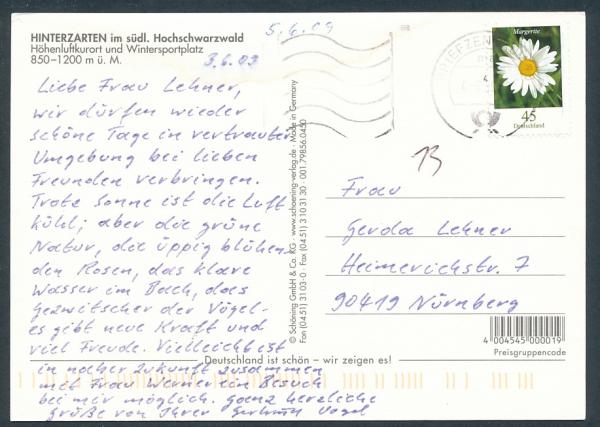 HINTERZARTEN im südl. Hochschwarzwald
Höhenluftkurort und Wintersportplatz
850-1200 m ü. M.
5.6.09
3.6.09
Liebe Frau Lehner,
wir dürfen wieder
schöne Tage in vertrauter
Umgebung bei lieben
Freunden verbringen.
Trotz Sonne ist die Luft
kühl; aber die grüne
Natur, die üppig blühen-
den Rosen, das klare
Wasser im Bach, das
Gezwitscher der Vögel -
es gibt neue Kraft und
viel Freude. Vielleicht ist
in naher Zukunft zusammen
mit Frau Werner ein Besuch
bei mir möglich. Ganz herzliche
Grüße von Ihrer Vogel
© Schöning GmbH & Co. KG · www.schoening-verlag.de · Made in Germany
Fon (04 51) 31 03-0 · Fax (04 51) 3 10 31 30
Margerite
45
Deutschland
Frau
Gerda Lehner
Heimerichstr. 7
90419 Nürnberg
4 004545 000019
Preisgruppencode
Deutschland ist schön – wir zeigen es!